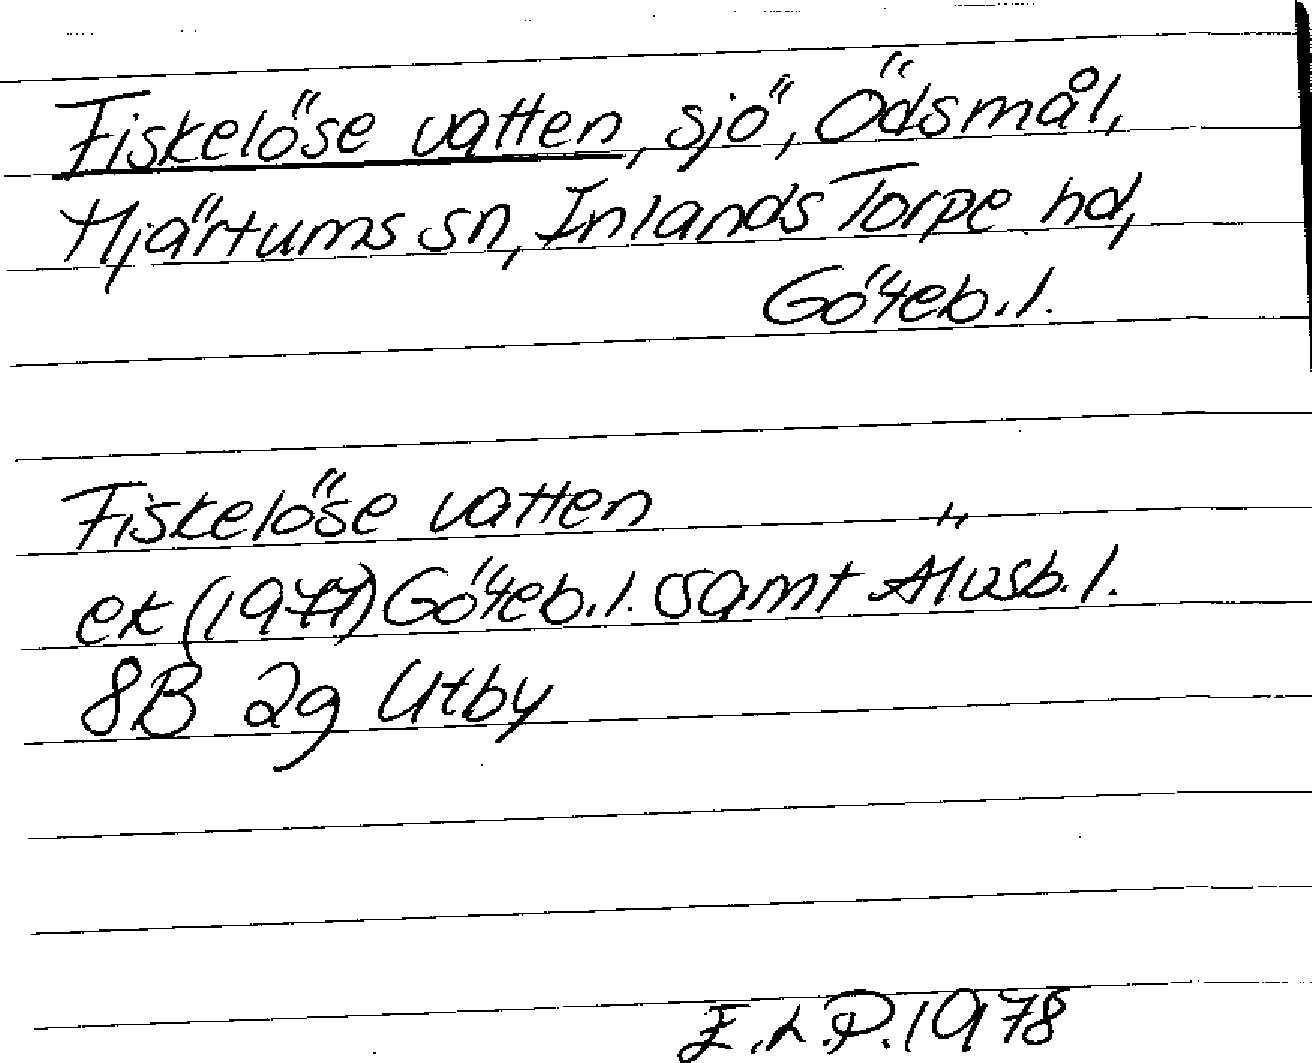 Fiskelöse vatten, sjö, Ödsmål,
Hjärtums sn, Inlands Torpe hd,
Göteb. l.
Fiskelöse vatten
ek (1977) Göteb. l. samt Älvsb. l.
8B 2g Utby
E.L.P. 1978